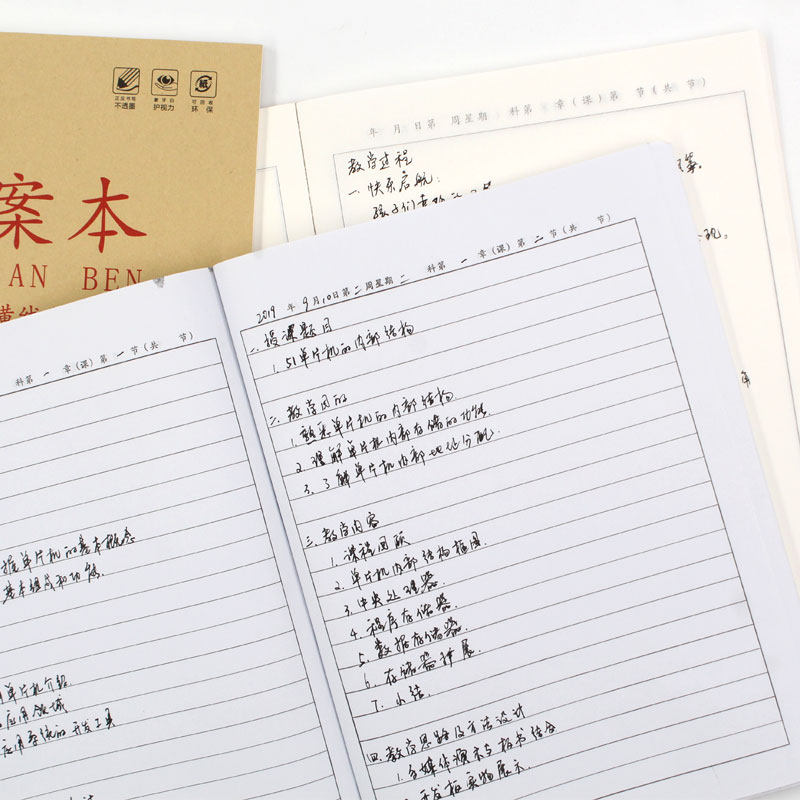 正反书写
不透墨
素字白
护视力
可回收
环 保
案本
AN BEN
横线
年 月 日第 周星期 科第 章(课)第 节(共 节)
教学过程
一.快乐启航:
等。
现。
科第 一 章(课)第 一 节(共 节)
握单片机的基本概念
基本组成和功能.
单片机介绍.
应用领域
应用系统的开发工具
2019 年 9 月 10 日第 二 周星期 二 科第 一 章(课)第 二 节(共 节)
一.授课题目
1. 51单片机的内部结构
二.教学目的
1.熟悉单片机的内部结构.
2.理解单片机内部存储的功能.
3.了解单片机内部地址分配.
三.教学内容
1.课程回顾
2.单片机内部结构框图.
3.中央处理器.
4.程序存储器.
5.数据存储器.
6.存储器扩展.
7.小结.
四.教学思路及方法设计
1.多媒体演示与板书结合
2.开发板实物展示.